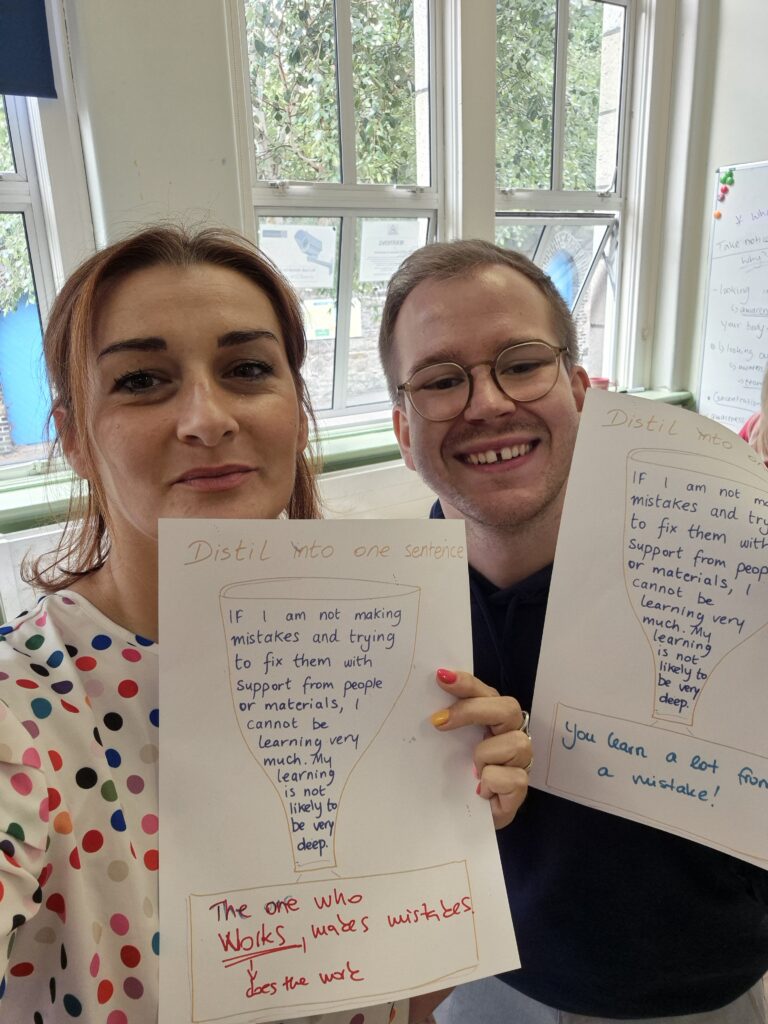 Distil into one sentence
IF I am not making
mistakes and trying
to fix them with
support from people
or materials, I
cannot be
learning very
much. My
learning
is not
likely to
be very
deep.
The one who
Works, makes mistakes.
does the work
Distil into o
IF I am not ma
mistakes and tryi
to fix them with
support from peop
or materials, I
cannot be
learning very
much. My
learning
is not
likely to
be very
deep.
You learn a lot from
a mistake!
Take notic
Why?
looking i
your body
looking ou
Concentratio